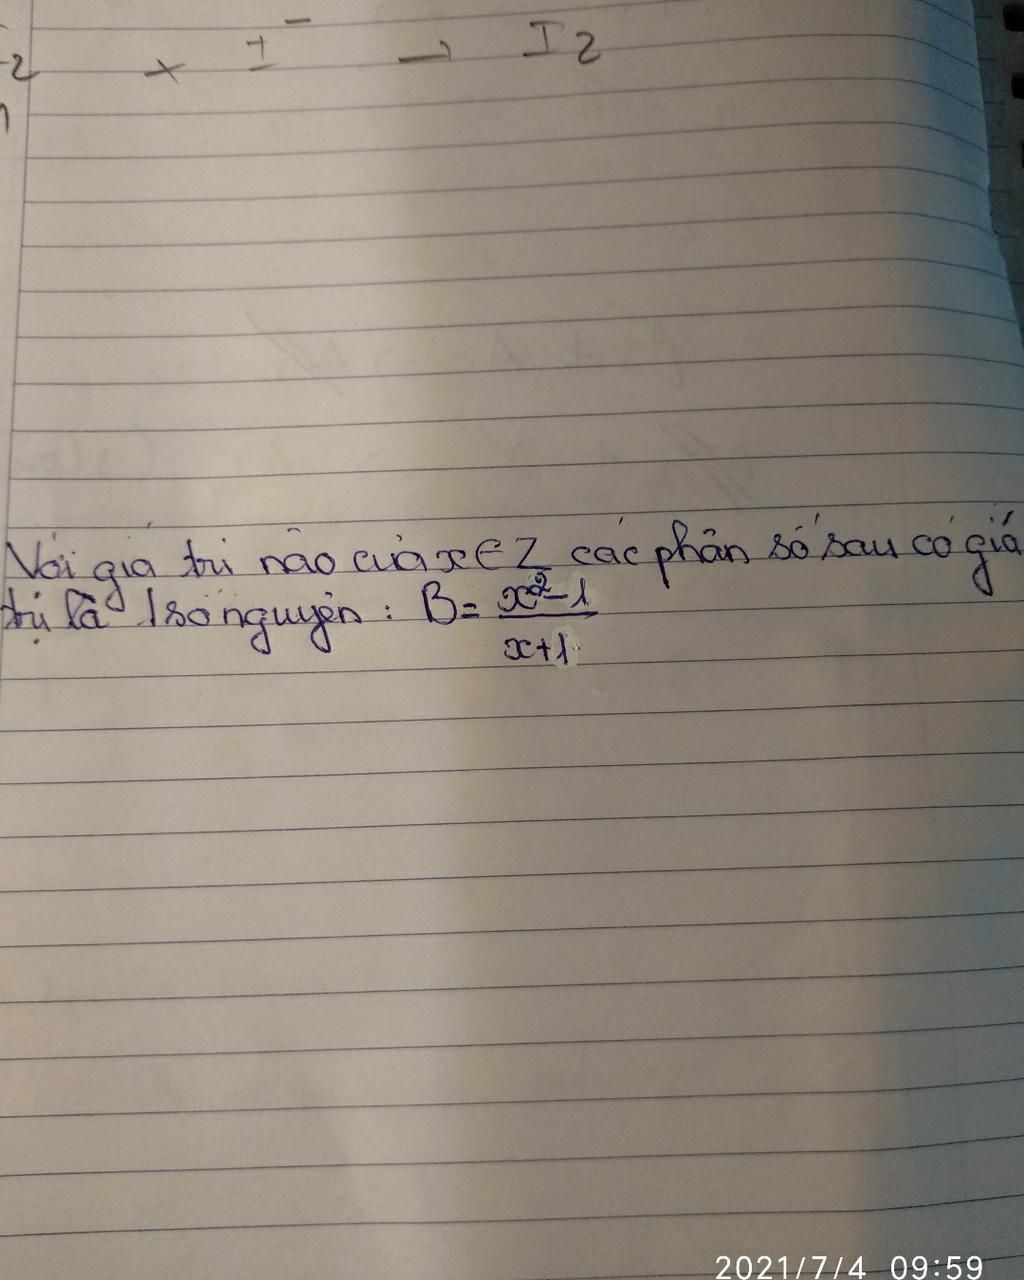 2 x I⁻ → I2
Với giá trị nào của x ∈ Z các phân số sau có giá
trị là 1 số nguyên : B = (x²-1)/(x+1)
2021/7/4 09:59